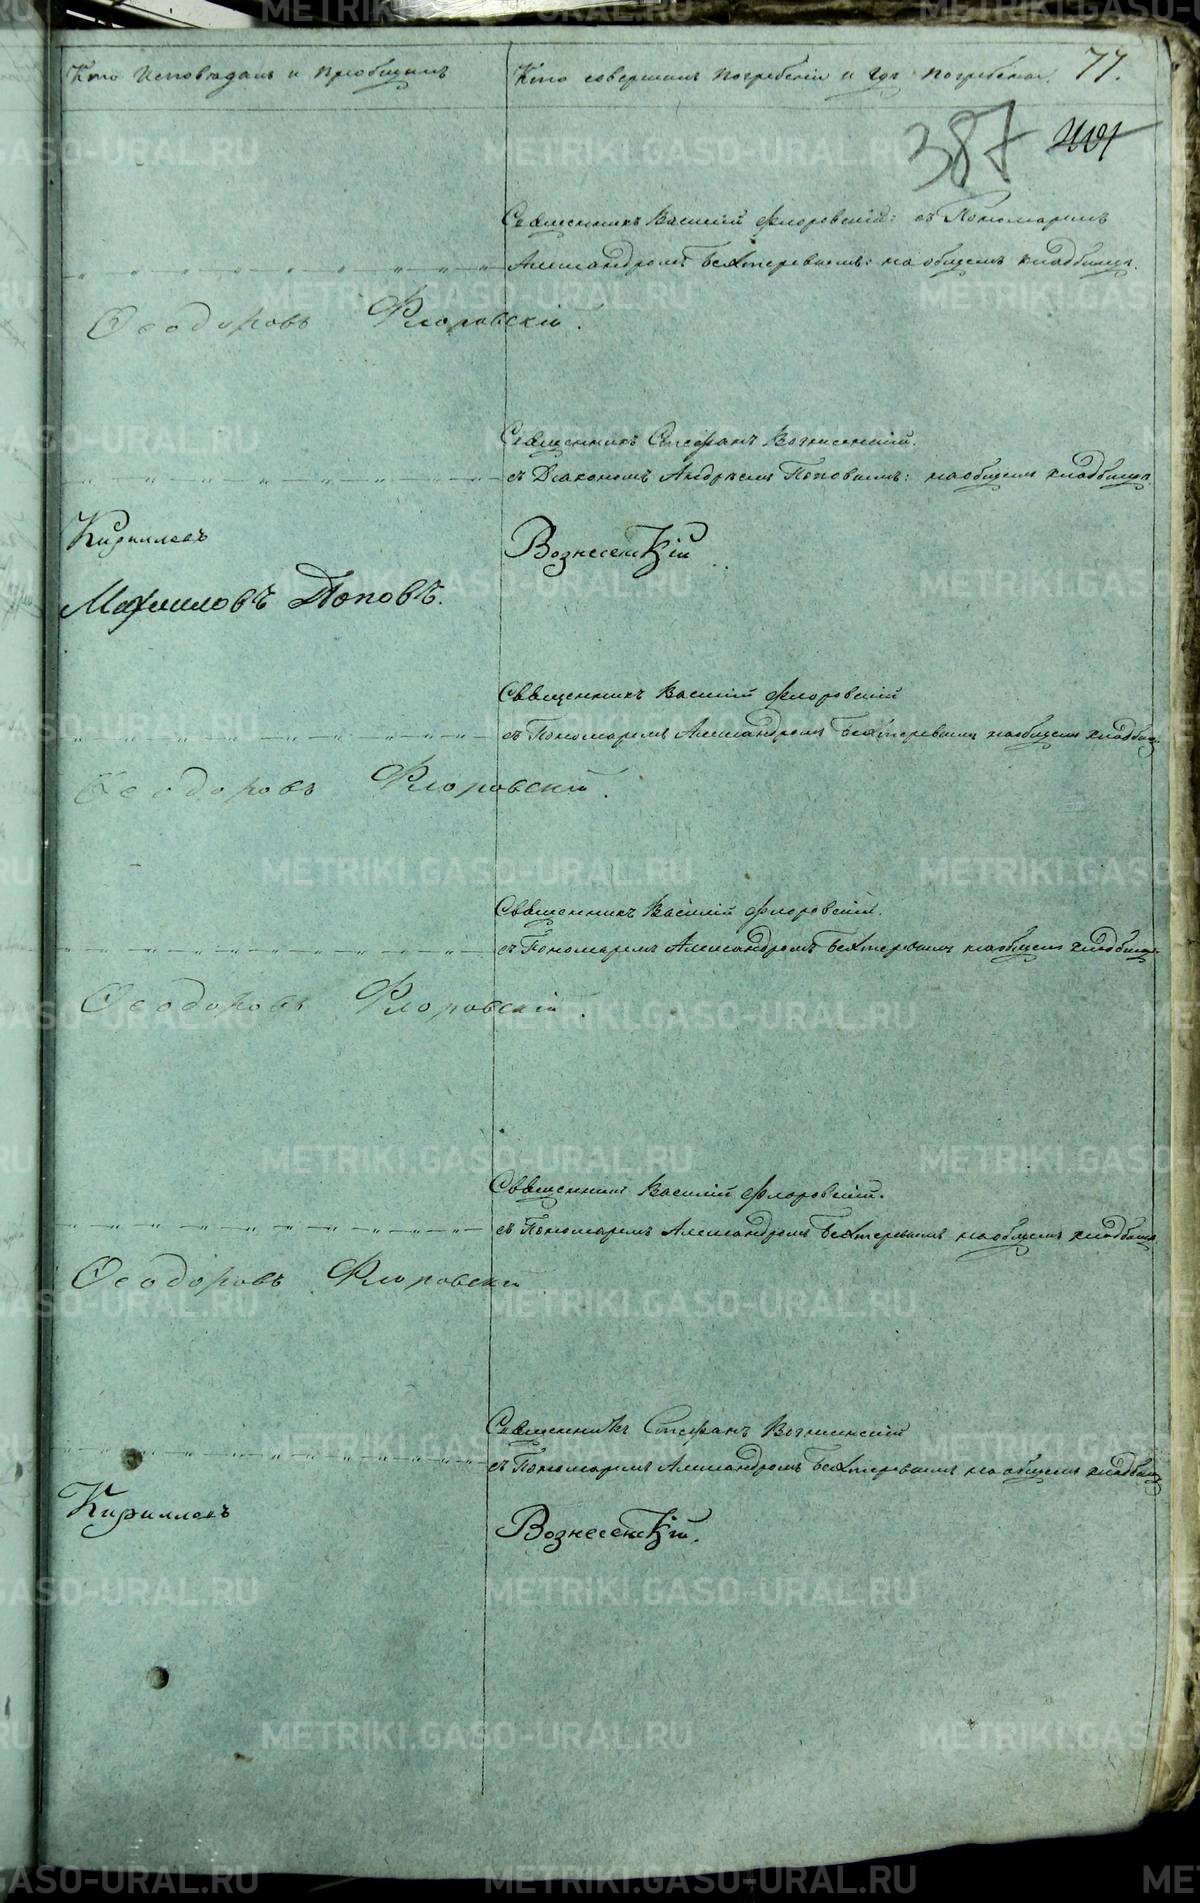 Кто Исповѣдалъ и Пріобщилъ
Кто совершилъ Погребеніе и гдѣ погребены.
77.
387
Священникъ Василій Флоровскій: съ Пономаремъ
Александромъ Бехтеревымъ: на общемъ кладбищѣ.
Ѳеодоровъ Флоровскій.
Священникъ Стефанъ Вознесенскій.
съ Діакономъ Андреемъ Поповымъ: на общемъ кладбищѣ.
Кириллевъ
Вознесенскій
Поповъ.
Священникъ Василій Флоровскій
съ Пономаремъ Александромъ Бехтеревымъ на общемъ кладбищ
Ѳеодоровъ Флоровскій.
Священникъ Василій Флоровскій.
съ Пономаремъ Александромъ Бехтеревымъ на общемъ кладбищѣ.
Ѳеодоровъ Флоровскій.
Священникъ Василій Флоровскій.
съ Пономаремъ Александромъ Бехтеревымъ на общемъ кладбищѣ
Ѳеодоровъ Флоровскій
Священникъ Стефанъ Вознесенскій
съ Пономаремъ Александромъ Бехтеревымъ на общемъ кладбищ
Кириллевъ
Вознесенскій.
METRIKI.GASO-URAL.RU